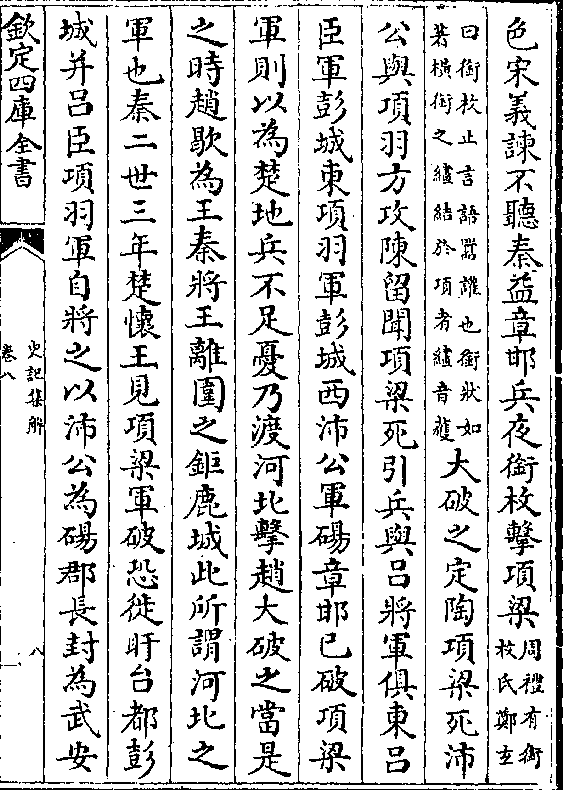 色宋義諫不聽秦益章邯兵夜銜枚擊項梁周禮有銜枚氏鄭玄
曰銜枚止言語嚻讙也銜狀如箸橫銜之繣結於項者繣音獲大破之定陶項梁死沛
公與項羽方攻陳留聞項梁死引兵與吕將軍俱東吕
臣軍彭城東項羽軍彭城西沛公軍碭章邯已破項梁
軍則以為楚地兵不足憂乃渡河北擊趙大破之當是
之時趙歇為王秦將王離圍之鉅鹿城此所謂河北之
軍也秦二世三年楚懷王見項梁軍破恐徙盱台都彭
城并吕臣項羽軍自將之以沛公為碭郡長封為武安
欽定四庫全書
史記集解
卷八
八